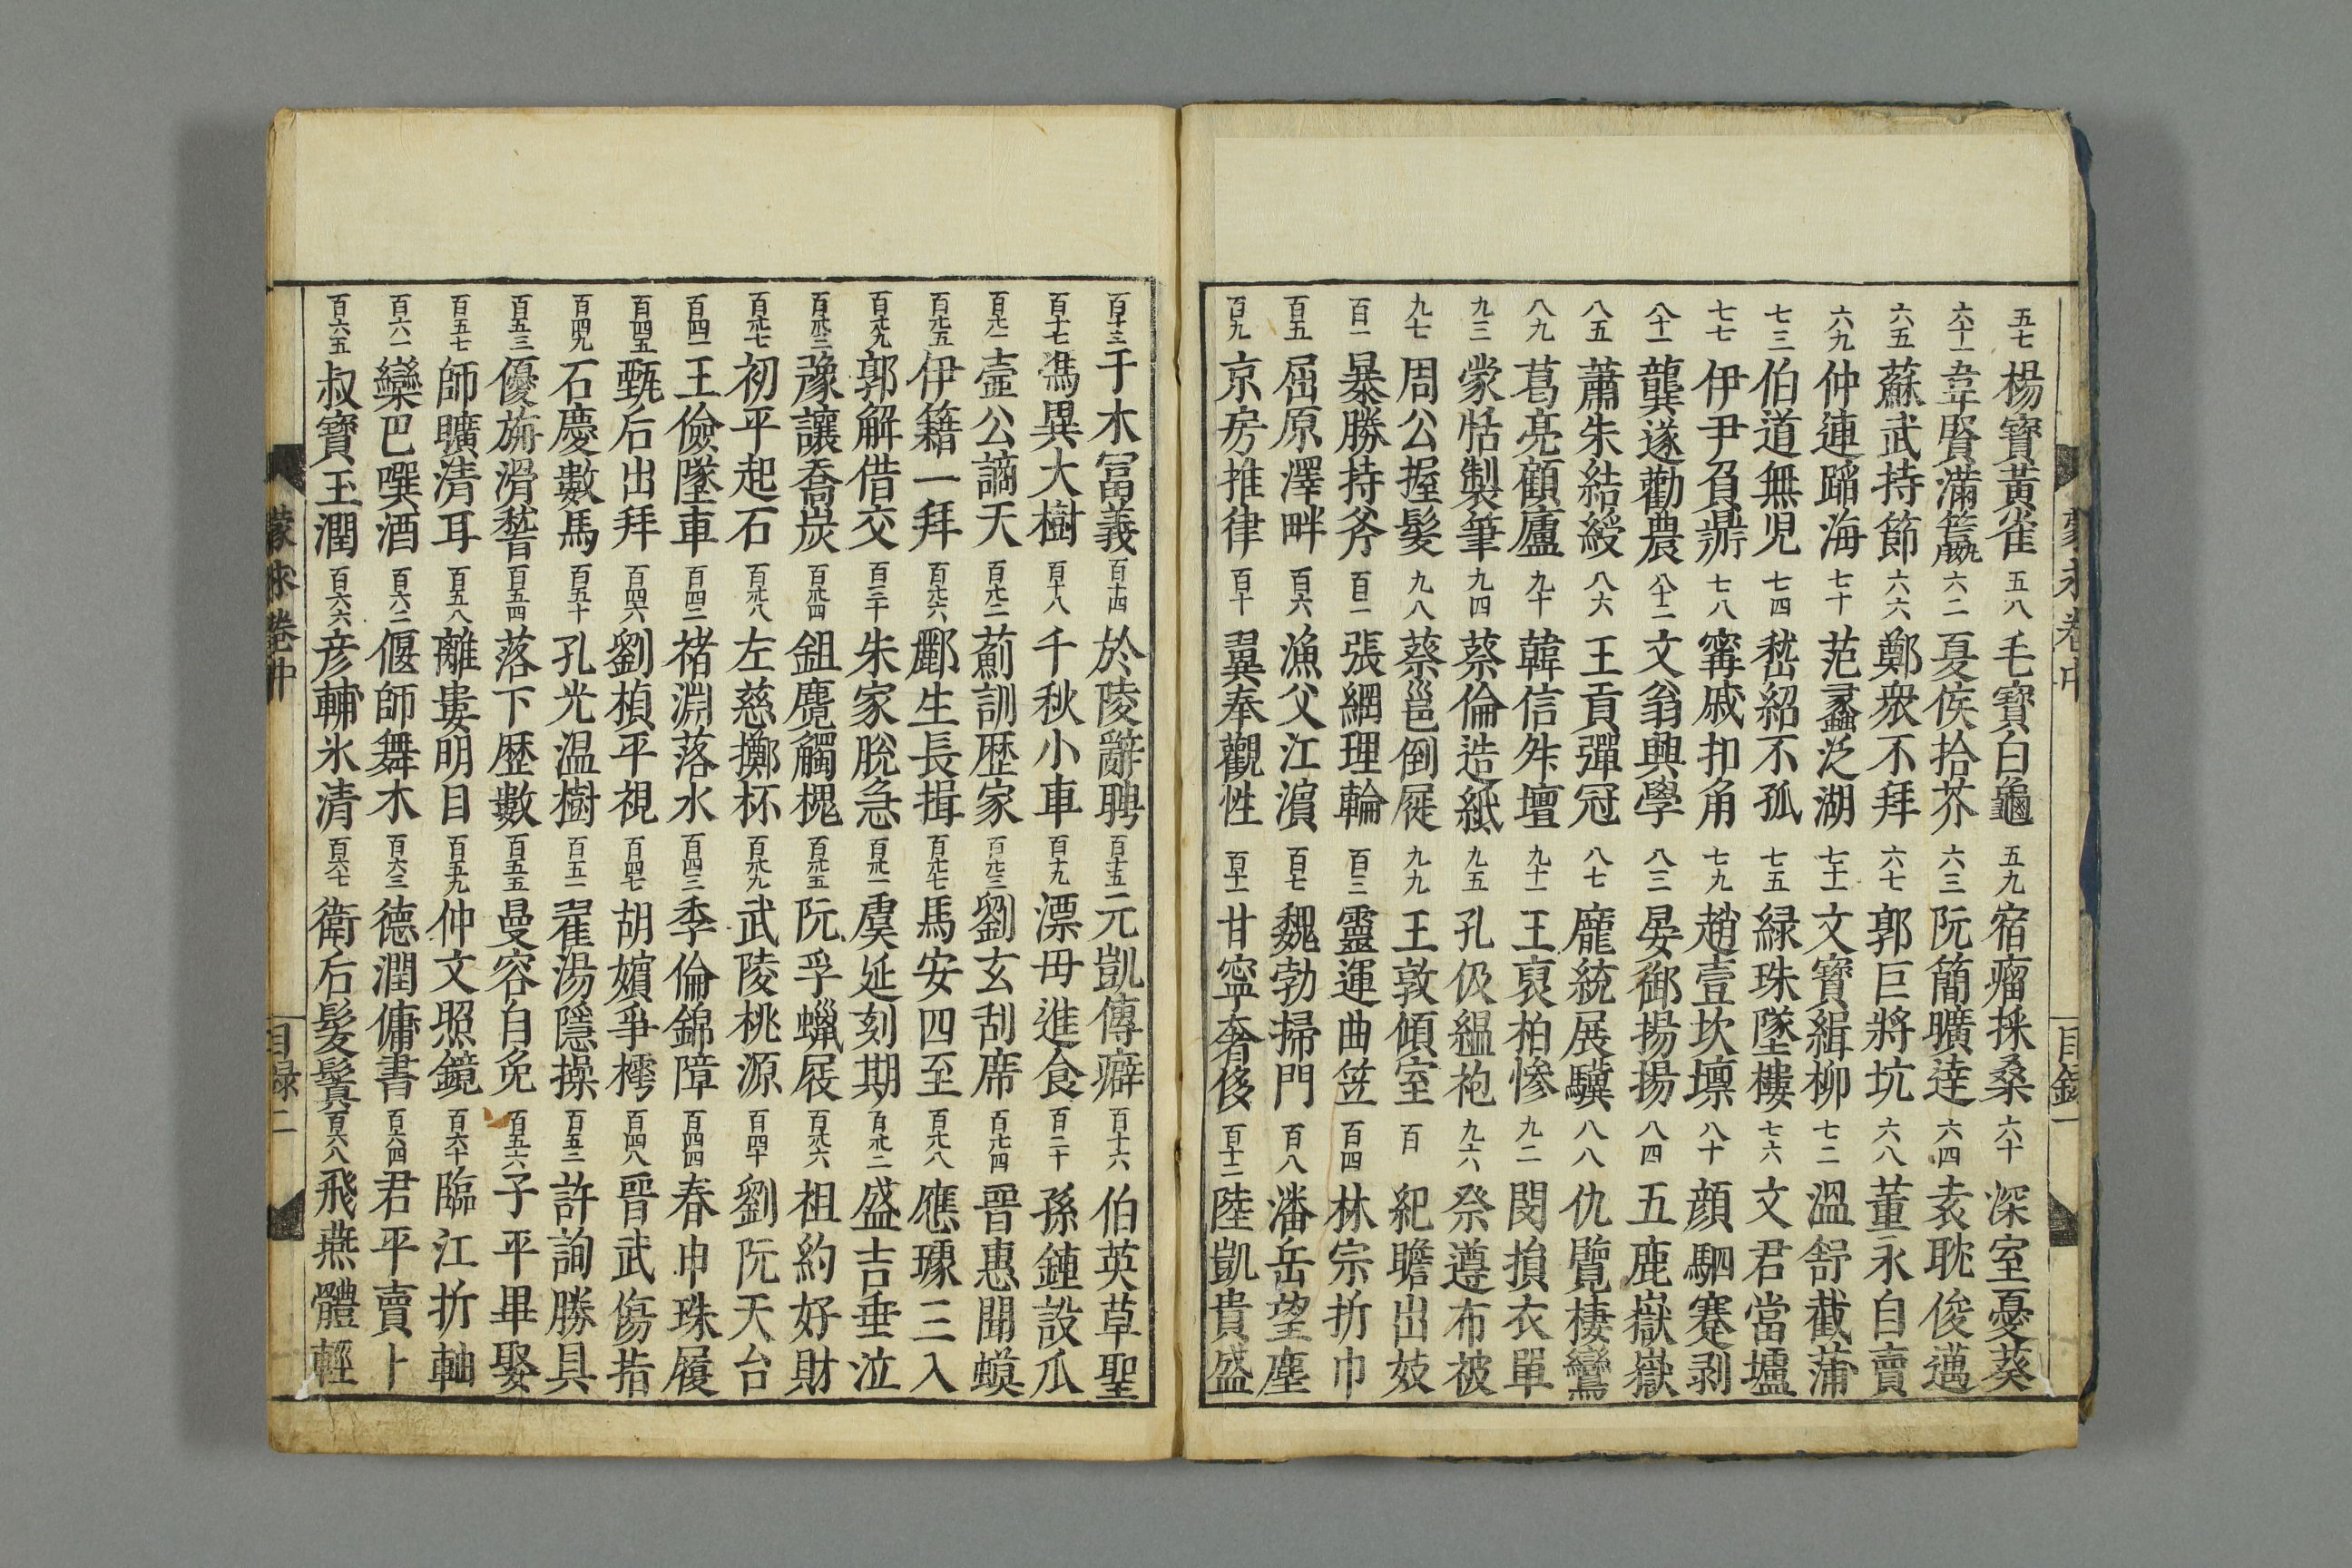 五七 楊寶黃雀 五八 毛寶白龜 五九 宿瘤採桑 六十 深室憂葵
六十一 韋賢滿籝 六二 夏侯拾芥 六三 阮簡曠達 六四 袁耽俊邁
六五 蘇武持節 六六 鄭衆不拜 六七 郭巨將坑 六八 董永自賣
六九 仲連蹈海 七十 范蠡泛湖 七十一 文寶緝柳 七二 溫舒截蒲
七三 伯道無児 七四 嵇紹不孤 七五 緑珠墜樓 七六 文君當壚
七七 伊尹負鼎 七八 寗戚扣角 七九 趙壹坎壈 八十 顔駟蹇剥
八十一 龔遂勸農 八十二 文翁興學 八三 晏御揚揚 八四 五鹿嶽嶽
八五 蕭朱結綬 八六 王貢彈冠 八七 龐統展驥 八八 仇覽棲鸞
八九 葛亮顧廬 九十 韓信舛壇 九十一 王裒柏惨 九二 閔損衣單
九三 蒙恬製筆 九四 蔡倫造紙 九五 孔伋緼袍 九六 祭遵布被
九七 周公握髮 九八 蔡邕倒屣 九九 王敦傾室 百 紀瞻出妓
百一 暴勝持斧 百二 張綱理輪 百三 靈運曲笠 百四 林宗折巾
百五 屈原澤畔 百六 漁父江濵 百七 魏勃掃門 百八 潘岳望塵
百九 京房推律 百十 翼奉觀性 百十一 甘寧奢侈 百十二 陸凱貴盛
蒙求卷中 目録一
百十三 干木富義 百十四 於陵辭聘 百十五 元凱傳癖 百十六 伯英草聖
百十七 馮異大樹 百十八 千秋小車 百十九 漂母進食 百二十 孫鍾設瓜
百廿一 壺公謫天 百廿二 薊訓歴家 百廿三 劉玄刮席 百廿四 晋惠聞蟆
百廿五 伊籍一拜 百廿六 酈生長揖 百廿七 馬安四至 百廿八 應璩三入
百廿九 郭解借交 百三十 朱家脫急 百卅一 虞延刻期 百卅二 盛吉垂泣
百卅三 豫讓吞炭 百卅四 鉏麑觸槐 百卅五 阮孚蠟屐 百卅六 祖約好財
百卅七 初平起石 百卅八 左慈擲杯 百卅九 武陵桃源 百四十 劉阮天台
百四一 王儉墜車 百四二 褚淵落水 百四三 季倫錦障 百四四 春申珠履
百四五 甄后出拜 百四六 劉楨平視 百四七 胡嬪爭樗 百四八 晋武傷指
百四九 石慶數馬 百五十 孔光温樹 百五一 翟湯隱操 百五二 許詢勝具
百五三 優旃滑稽 百五四 落下歴數 百五五 曼容自免 百五六 子平畢娶
百五七 師曠清耳 百五八 離婁明目 百五九 仲文照鏡 百六十 臨江折軸
百六一 欒巴噀酒 百六二 偃師舞木 百六三 德潤傭書 百六四 君平賣卜
百六五 叔寶玉潤 百六六 彦輔氷清 百六七 衛后髮鬒 百六八 飛燕體輕
蒙求卷中 目録二